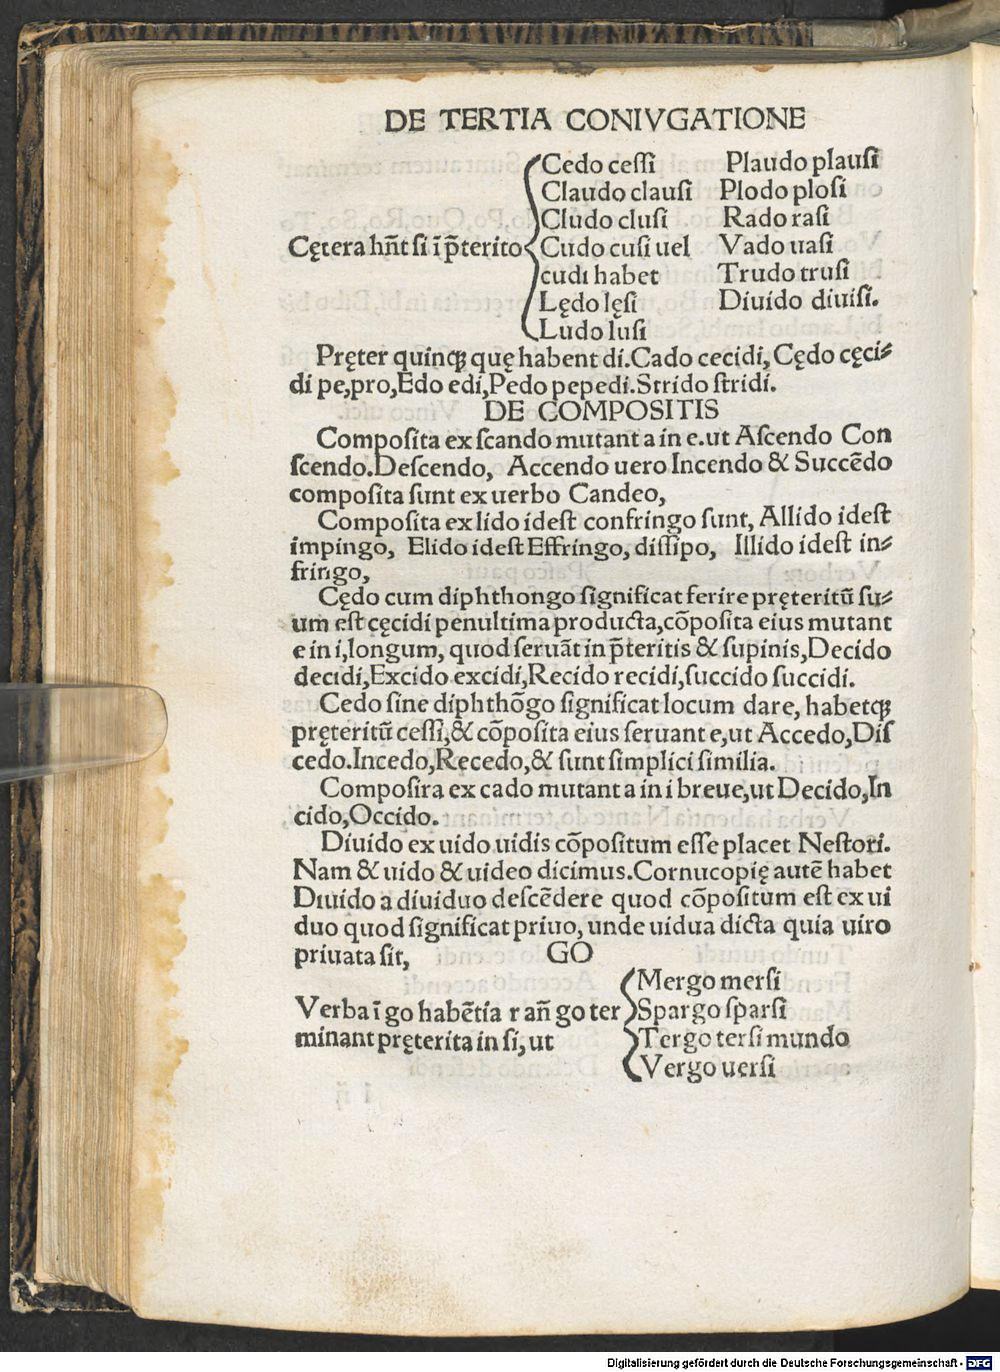 DE TERTIA CONIVGATIONE
Cedo cessi Plaudo plausi
Claudo clausi Plodo plosi
Cludo clusi Rado rasi
Cętera hn̄t si ī p̄terito Cudo cusi uel Vado uasi
cudi habet Trudo trusi
Lędo lęsi Diuido diuisi.
Ludo lusi
Pręter quinqꝫ quę habent di. Cado cecidi, Cędo cęci⸗
di pe, pro, Edo edi, Pedo pepedi. Strido stridi.
DE COMPOSITIS
Composita ex scando mutant a in e. ut Ascendo Con
scendo. Descendo, Accendo uero Incendo & Succēdo
composita sunt ex uerbo Candeo,
Composita ex lido idest confringo sunt, Allido idest
impingo, Elido idest Effringo, dissipo, Illido idest in⸗
fringo,
Cędo cum diphthongo significat ferire pręteritū su⸗
um est cęcidi penultima producta, cōposita eius mutant
e in i, longum, quod seruāt in p̄teritis & supinis, Decido
decidi, Excido excidi, Recido recidi, succido succidi.
Cedo sine diphthōgo significat locum dare, habetqꝫ
pręteritū cessi, & cōposita eius seruant e, ut Accedo, Dis
cedo. Incedo, Recedo, & sunt simplici similia.
Composira ex cado mutant a in i breue, ut Decido, In
cido, Occido.
Diuido ex uido uidis cōpositum esse placet Nestori.
Nam & uido & uideo dicimus. Cornucopię autē habet
Diuido a diuiduo descēdere quod cōpositum est ex ui
duo quod significat priuo, unde uidua dicta quia uiro
priuata sit, GO
Mergo mersi
Verba ī go habētia r an̄ go ter Spargo sparsi
minant pręterita in si, ut Tergo tersi mundo
Vergo uersi
Digitalisierung gefördert durch die Deutsche Forschungsgemeinschaft - DFG